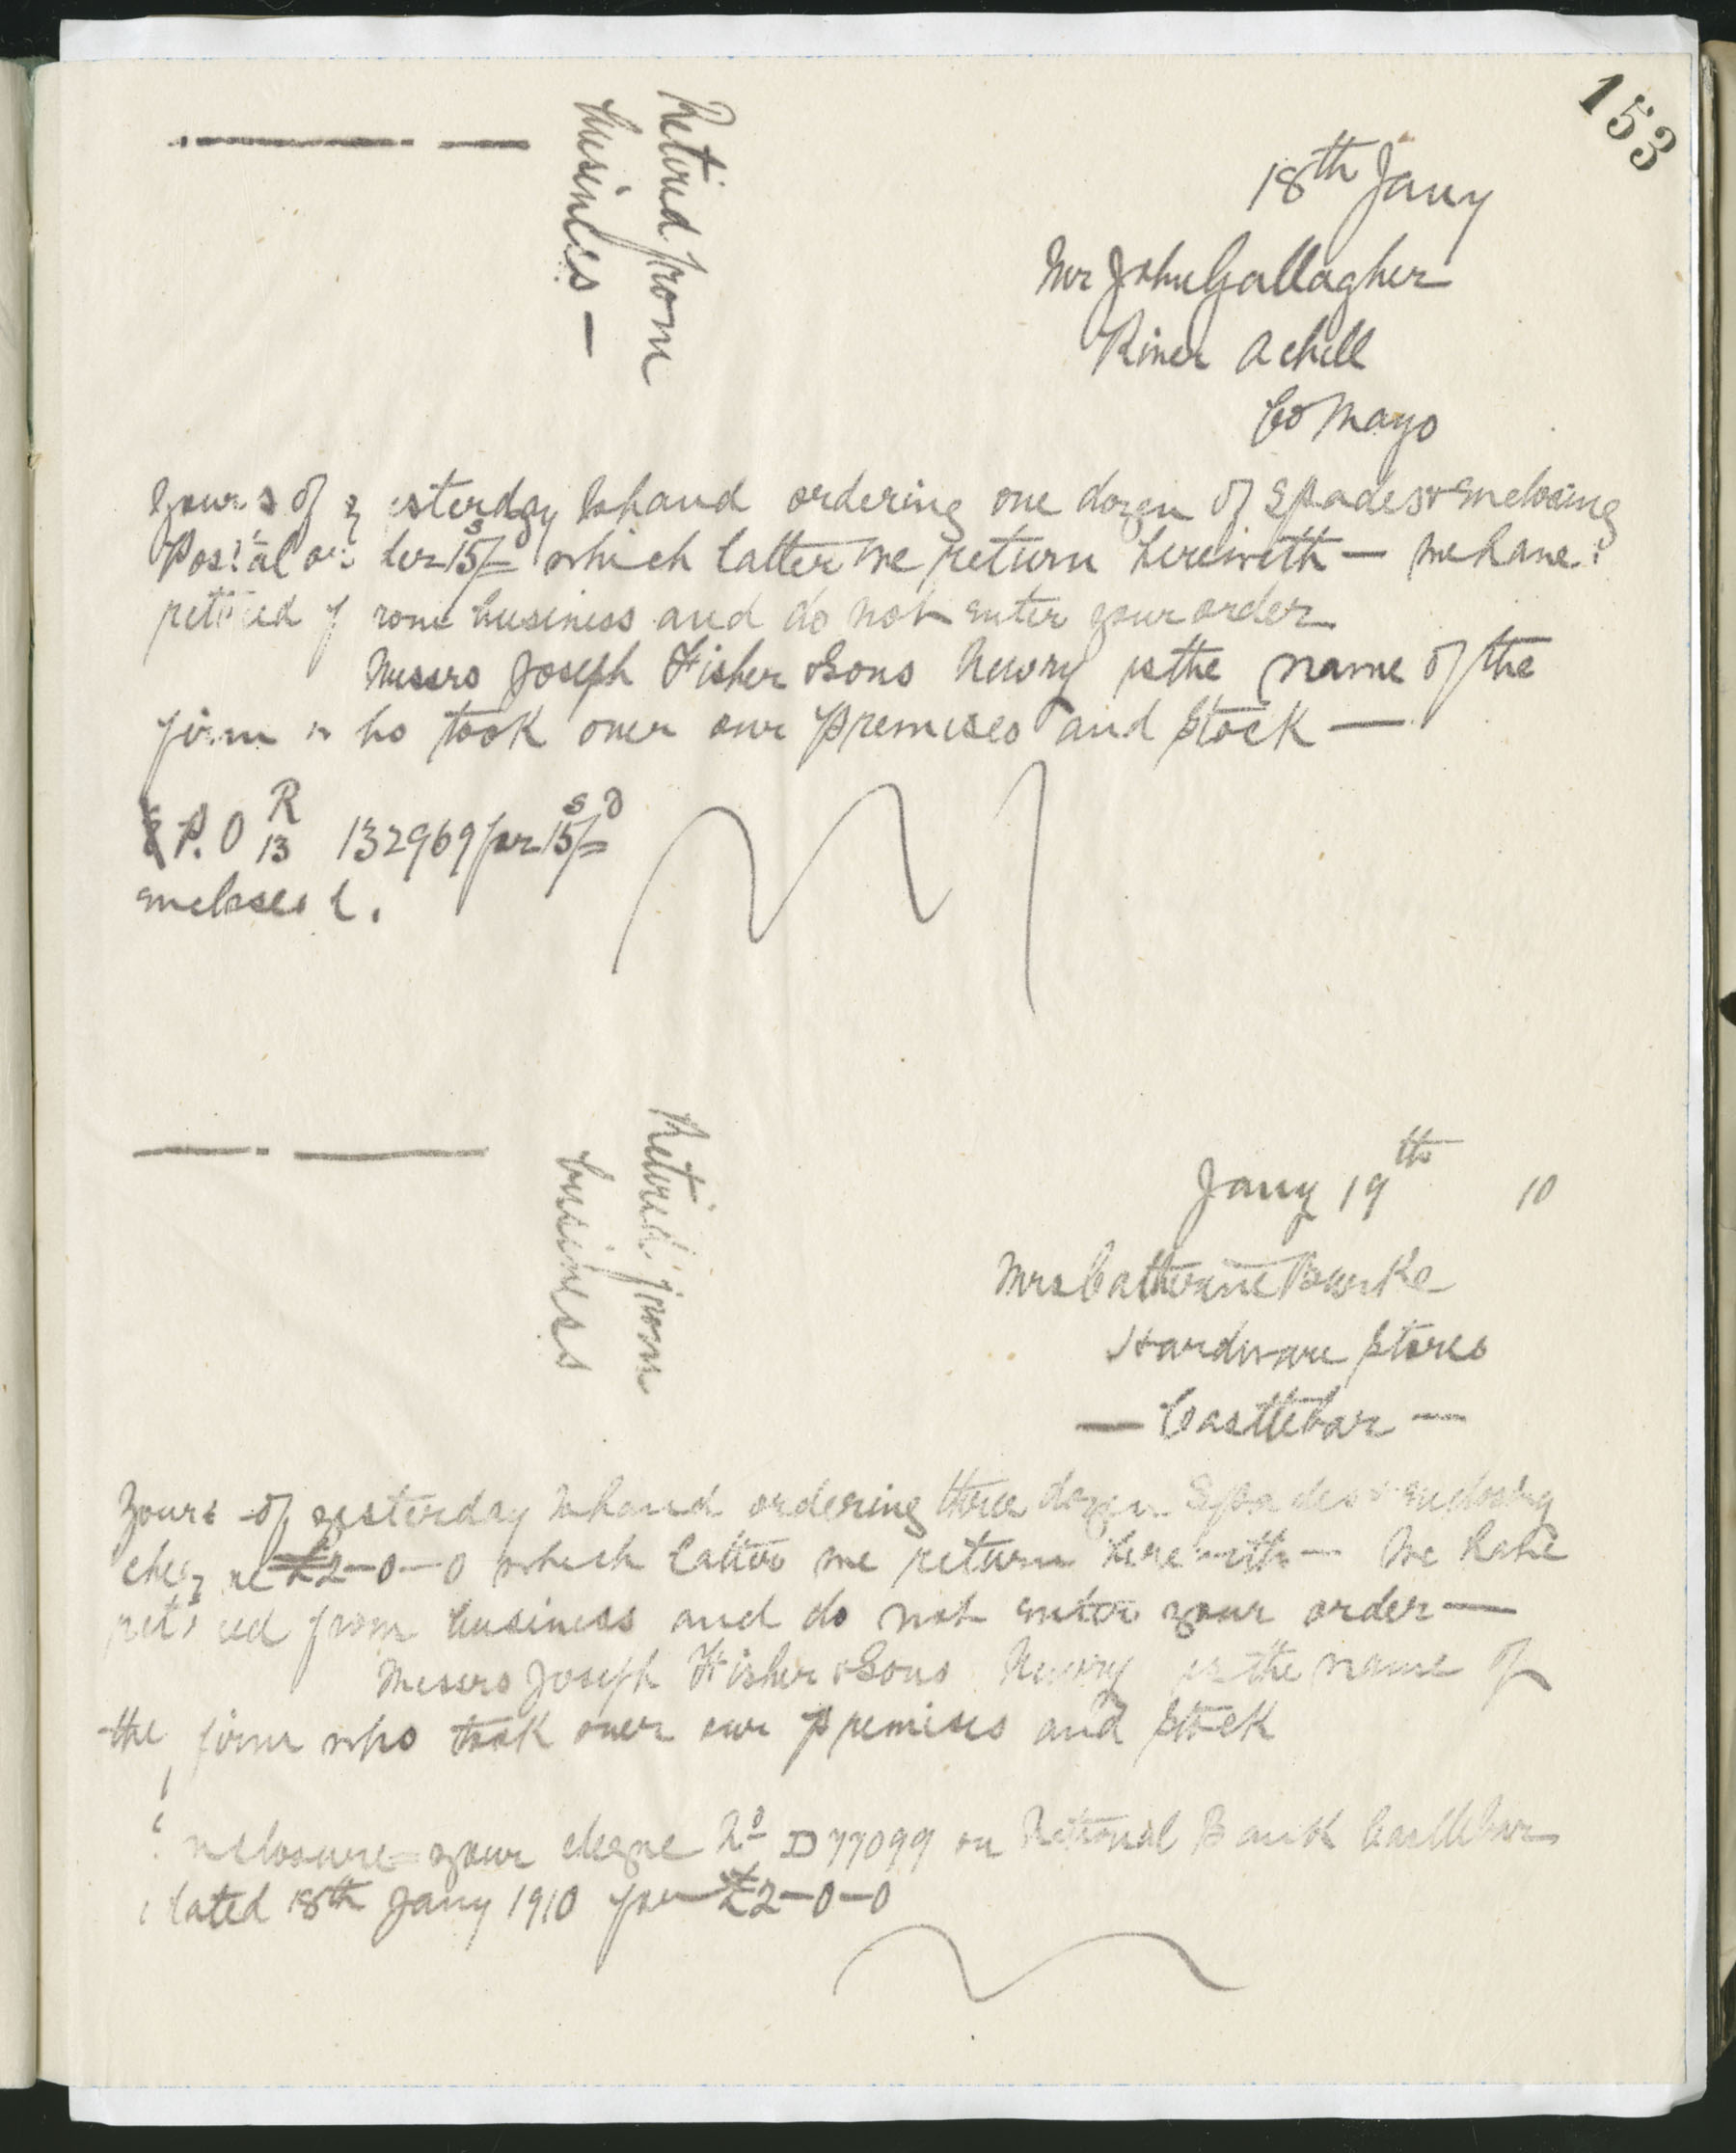 153
Retired from
business —
18th Jany
Mr John Gallagher
River Achill
Co Mayo
Yours of yesterday to hand ordering one dozen of Spades & enclosing
Postal order 15s/= which latter we return herewith — we have
retired from business and do not enter your order
Messrs Joseph Fisher & Sons Newry is the name of the
firm who took over our premises and stock —
P.O R/13 132969 for 15s/=d
enclosed.
Retired from
business
Jany 19th 10
Mrs Catherine Bourke
Hardware Stores
— Castlebar —
Yours of yesterday to hand ordering three dozen Spades & enclosing
cheque £2-0-0 which latter we return herewith — We have
retired from business and do not enter your order —
Messrs Joseph Fisher & Sons Newry is the name of
the firm who took over our premises and stock
Enclosure = your cheque No D 77099 on National Bank Castlebar
dated 18th Jany 1910 for £2-0-0